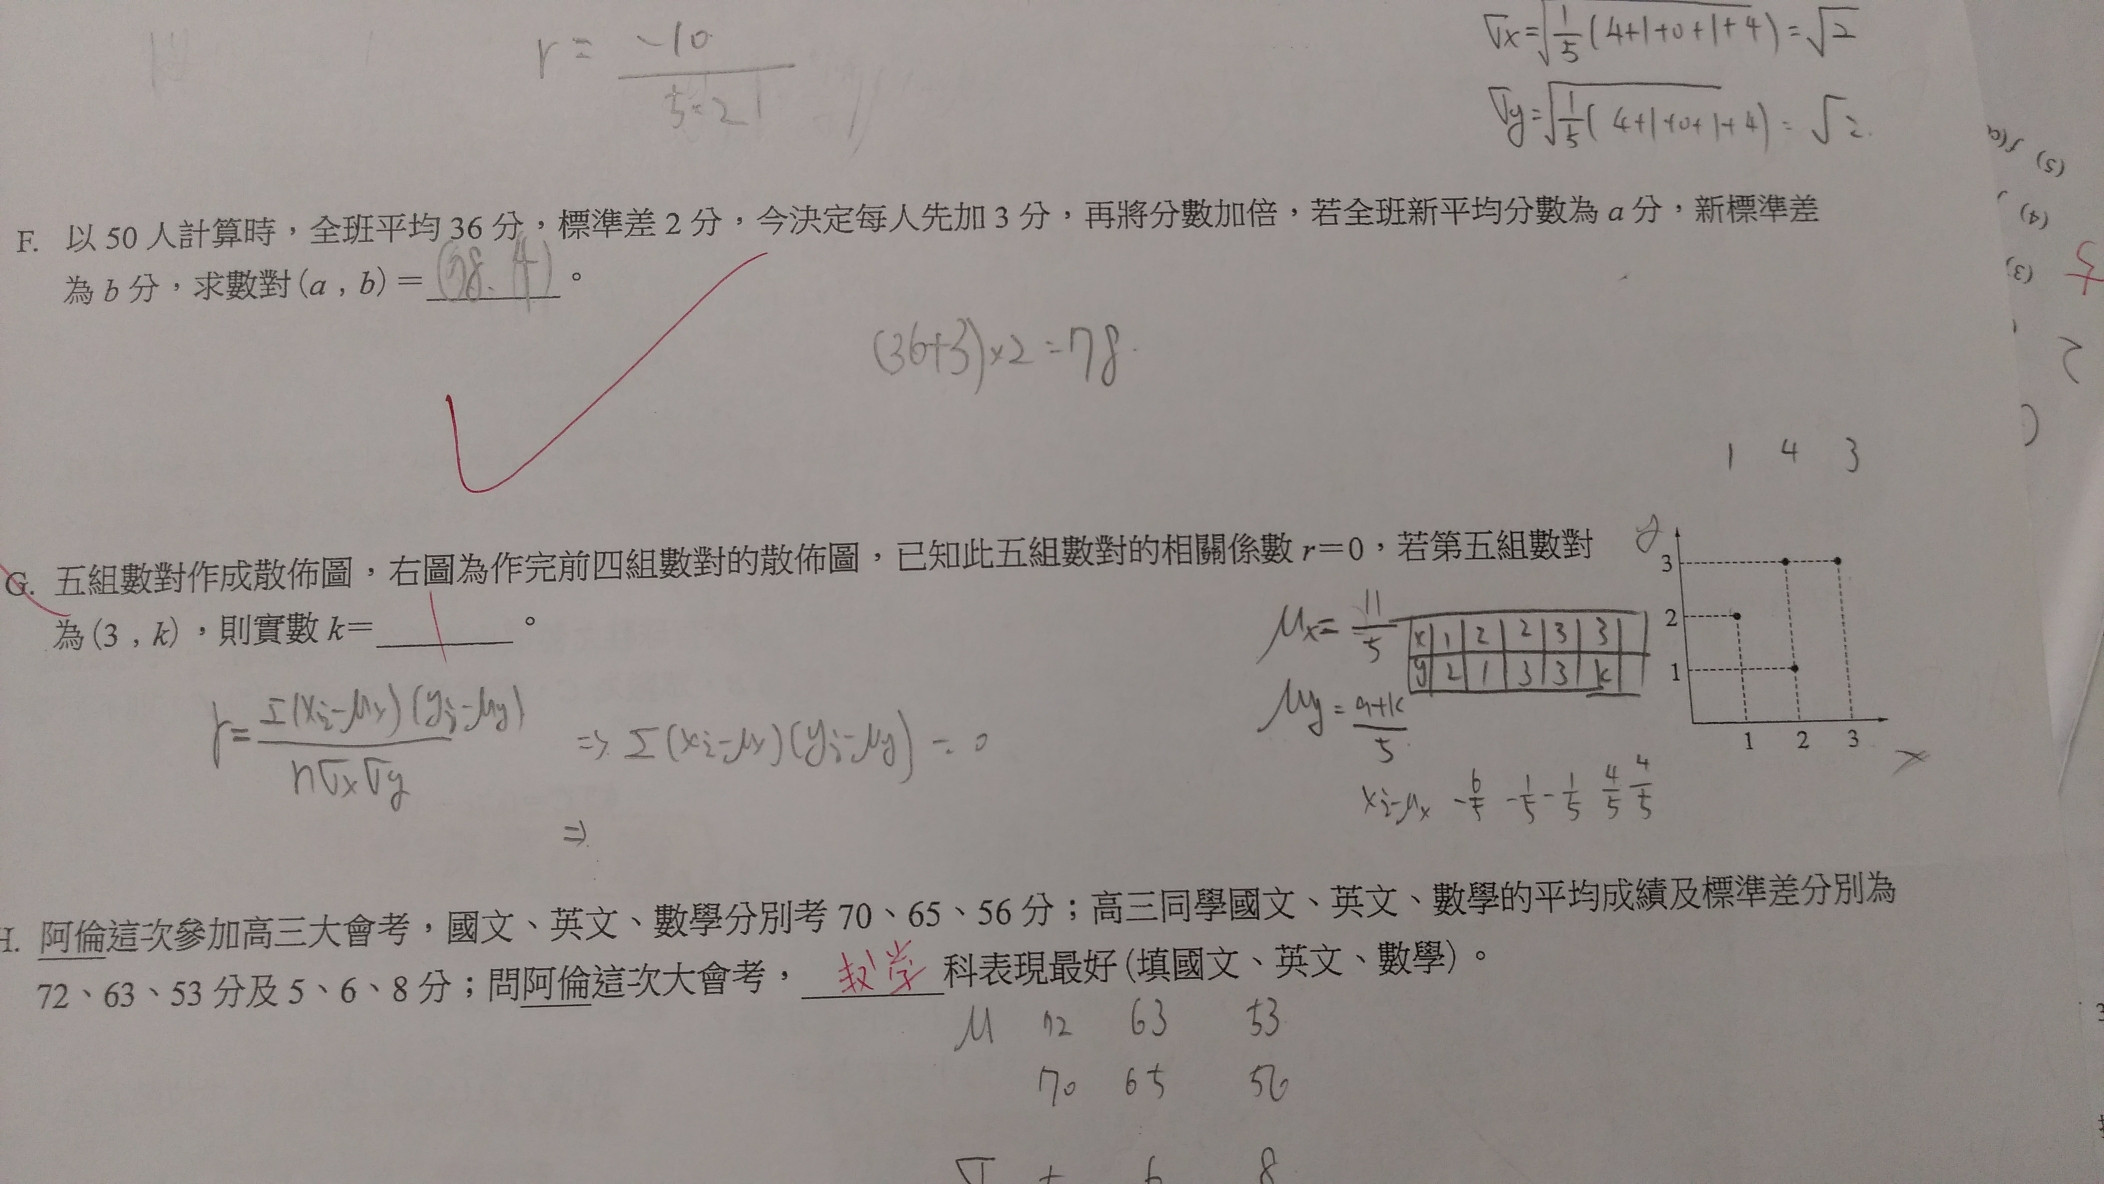 r = -10 / 5×2
σx=√1/5(4+1+0+1+4)=√2
σy=√1/5(4+1+0+1+4)=√2
F. 以50人計算時，全班平均36分，標準差2分，今決定每人先加3分，再將分數加倍，若全班新平均分數為a分，新標準差
為b分，求數對(a , b)＝(78.4)。
(36+3)×2=78
1 4 3
G. 五組數對作成散佈圖，右圖為作完前四組數對的散佈圖，已知此五組數對的相關係數r＝0，若第五組數對
為(3 , k)，則實數k＝1。
r= Σ(xi-μx)(yi-μy) / nσxσy
⇒ Σ(xi-μx)(yi-μy) = 0
⇒
μx= 11/5
x 1 2 2 3 3
y 2 1 3 3 k
μy= 9+k/5
xi-μx -6/5 -1/5 -1/5 4/5 4/5
y
3
2
1
1 2 3
x
H. 阿倫這次參加高三大會考，國文、英文、數學分別考70、65、56分；高三同學國文、英文、數學的平均成績及標準差分別為
72、63、53分及5、6、8分；問阿倫這次大會考，数学科表現最好(填國文、英文、數學)。
μ 72 63 53
70 65 56
σ 5 6 8
(5) f(a
(4)
(3)